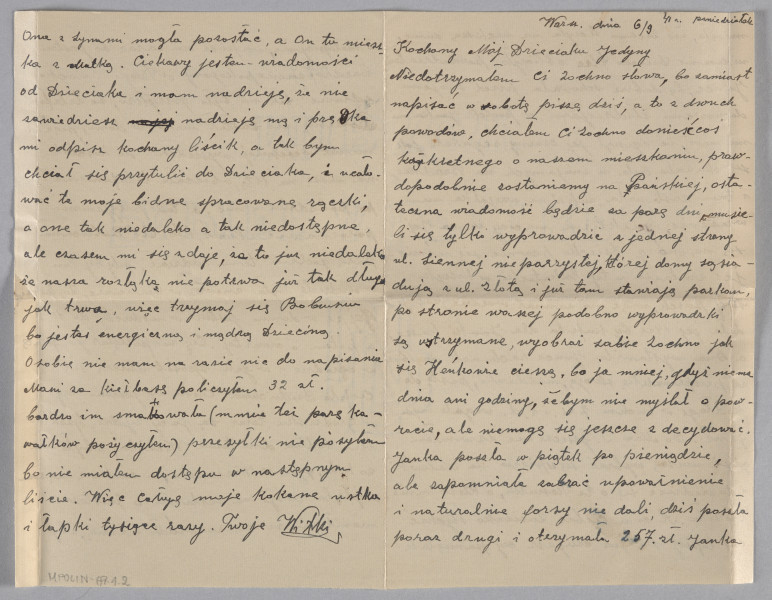 Wawa. dnia 6/9 41 r. poniedziałek
Kochany Mój Dzieciaku Jedyny
Niedotrzymałem Ci Zochno słowa, bo zamiast
napisać w sobotę piszę dziś, a to z dwuch
powodów, chciałem Ci Zochno donieść coś
konkretnego o naszem mieszkaniu, praw-
dopodobnie zostaniemy na Pańskiej, osta-
teczna wiadomość będzie za parę dni, musie-
li się tylko wyprowadzić z jednej strony
ul. Siennej nieparzystej, której domy sąsia-
dują z ul. Złotą i już tam stawiają parkan,
po stronie waszej podobno wyprowadzki
są wstrzymane, wyobraź sobie Zochno jak
się Heńkowie cieszą, bo ja mniej, gdyż niema
dnia ani godziny, żebym nie myślał o pow-
rocie, ale niemogę się jeszcze zdecydować.
Janka poszła w piątek po pieniądze,
ale zapomniała zabrać upoważnienie
i naturalnie forsy nie dali, dziś poszła
poraz drugi i otrzymała 257. zł. Janka
Ona z synami mogła pozostać, a On tu miesz-
ka z Matką. Ciekawy jestem wiadomości
od Dzieciaka i mam nadzieję, że nie
zawiedziesz nadzieją mą i prędko
mi odpisz kochany liścik, a tak bym
chciał się przytulić do Dzieciaka, i ucało-
wać te moje bidne spracowane rączki,
a one tak niedaleko a tak niedostępne,
ale czasem mi się zdaje, że to już niedaleko
że nasza rozłąka nie potrwa już tak długo
jak trwa, więc trzymaj się Bobusiu
bo jesteś energiczną i mądrą Dzieciną.
O sobie nie mam na razie nic do napisania
Mani za kiełbasę policzyłem 32 zł.
bardzo im smakowała (mnie też parę ka-
wałków pożyczyłem) przesyłki nie posyłałem
bo nie miałem dostępu w następnym
liście. Więc całuję moje kochane ustka
i łapki tysiące razy. Twoje
MPOLIN-A7.1.2